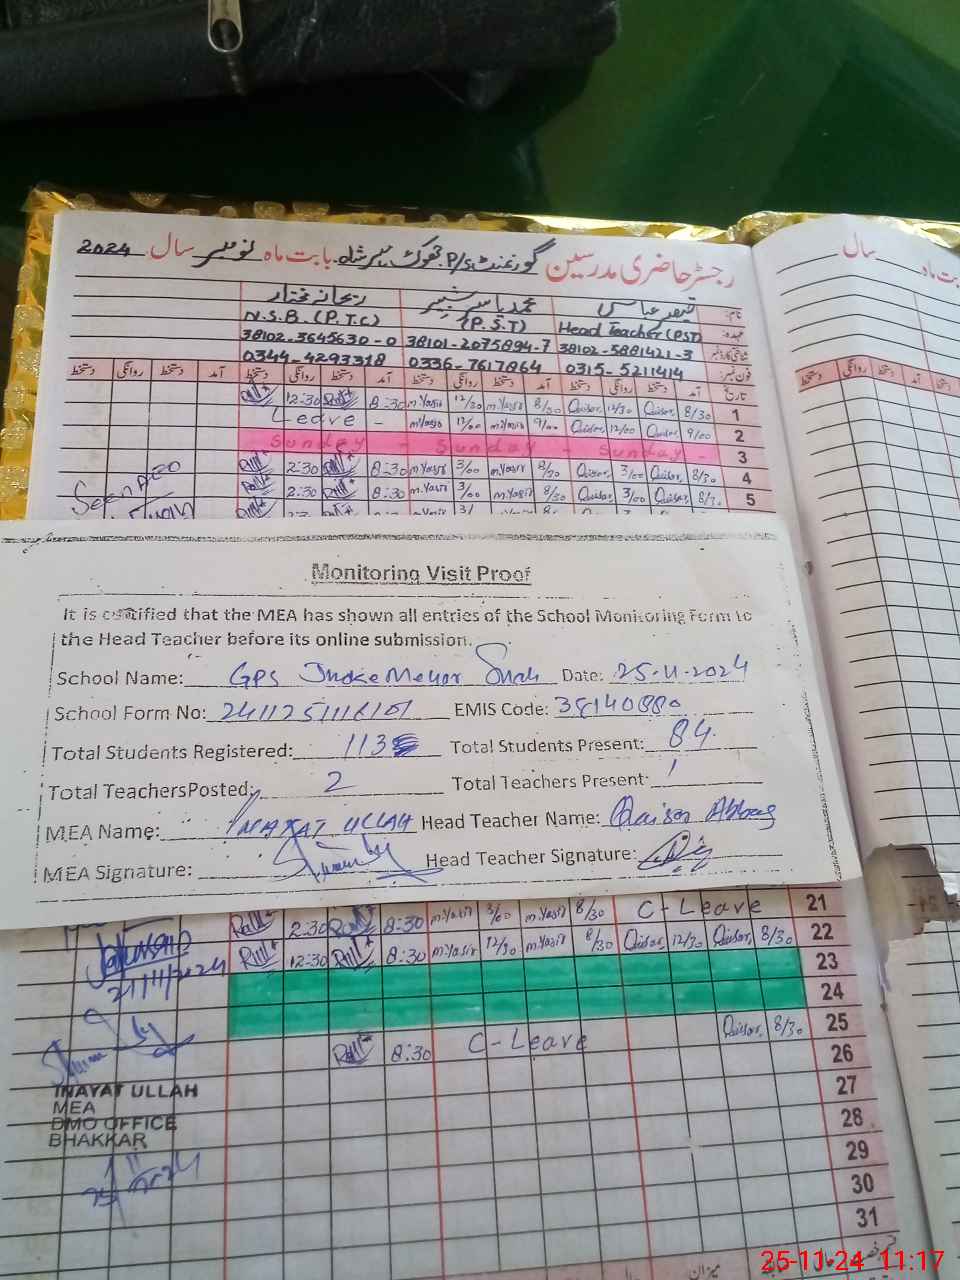 رجسٹر حاضری مدرسین گورنمنٹ P/S. بابت ماہ نومبر سال 2024
نام: قیصر عباس محمد یاسر ریحانہ مختار
عہدہ: Head Teacher (PST) (P.S.T) N.S.B. (P.T.C)
شناختی کارڈ نمبر 38102-5881421-3 38101-2075894-7 38102-3645630-0
فون نمبر: 0315-5211414 0336-7617864 0344-4293318
تاریخ آمد دستخط روانگی دستخط آمد دستخط روانگی دستخط آمد دستخط روانگی دستخط آمد دستخط روانگی دستخط
1 8/30 Qaisar, 12/30 Qaisar, 8/30 m.Yasir 12/30 m.Yasir 8:30 12:30
2 9/00 Qaisar, 12/00 Qaisar, 9/00 m.Yasir 12/00 m.Yasir - Leave
3 Sunday - Sunday - Sunday -
4 8/30 Qaisar, 3/00 Qaisar, 8/30 m.Yasir 3/00 m.Yasir 8:30 2:30
5 Qaisar, 3/00 Qaisar, 8/30 m.Yasir 3/00 m.Yasir 8:30 2:30
Seen
Monitoring Visit Proof
It is certified that the MEA has shown all entries of the School Monitoring Form to
the Head Teacher before its online submission.
School Name: GPS Shah Date: 25-11-2024
School Form No: EMIS Code: 38140880
Total Students Registered: 113 Total Students Present: 84
Total TeachersPosted: 2 Total Teachers Present: 1
MEA Name: INAYAT ULLAH Head Teacher Name: Qaisar Abbas
MEA Signature: Head Teacher Signature:
21 C-Leave 8/30 m.Yasir 3/00 m.Yasir 8:30 2:30
22 8/30 Qaisar, 12/30 Qaisar, 8/30 m.Yasir 12/30 m.Yasir 8:30 12:30
21/11/2024
23
24
25 8/30 Qaisar, C-Leave 8:30
26
27
28
29
30
31
INAYAT ULLAH
MEA
DMO OFFICE
BHAKKAR
میزان
سال
بابت ماہ
دستخط روانگی دستخط آمد
25-11-24 11:17